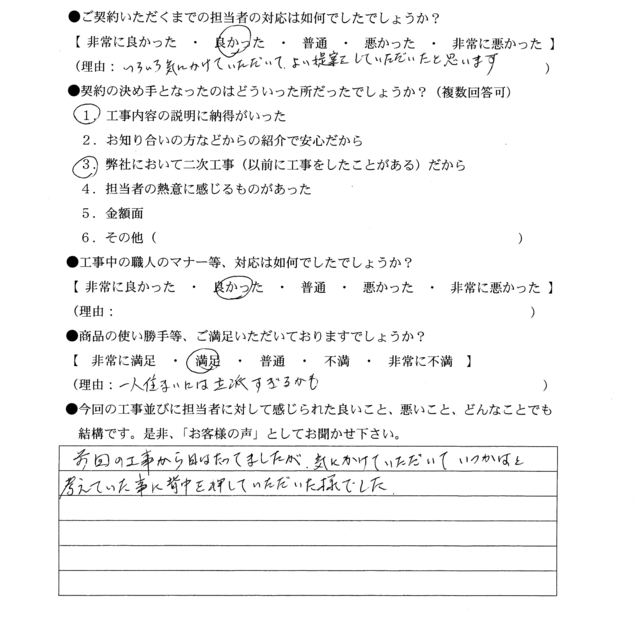 ●ご契約いただくまでの担当者の対応は如何でしたでしょうか？
【 非常に良かった ・ 良かった ・ 普通 ・ 悪かった ・ 非常に悪かった 】
（理由：いろいろ気にかけていただいて、よい提案をしていただいたと思います ）
●契約の決め手となったのはどういった所だったでしょうか？（複数回答可）
１．工事内容の説明に納得がいった
２．お知り合いの方などからの紹介で安心だから
３．弊社において二次工事（以前に工事をしたことがある）だから
４．担当者の熱意に感じるものがあった
５．金額面
６．その他（ ）
●工事中の職人のマナー等、対応は如何でしたでしょうか？
【 非常に良かった ・ 良かった ・ 普通 ・ 悪かった ・ 非常に悪かった 】
（理由： ）
●商品の使い勝手等、ご満足いただいておりますでしょうか？
【 非常に満足 ・ 満足 ・ 普通 ・ 不満 ・ 非常に不満 】
（理由：一人住まいには立派すぎるかも ）
●今回の工事並びに担当者に対して感じられた良いこと、悪いこと、どんなことでも
結構です。是非、「お客様の声」としてお聞かせ下さい。
前回の工事から日はたってましたが、気にかけていただいていつかはと
考えていた事に背中を押していただいた様でした。